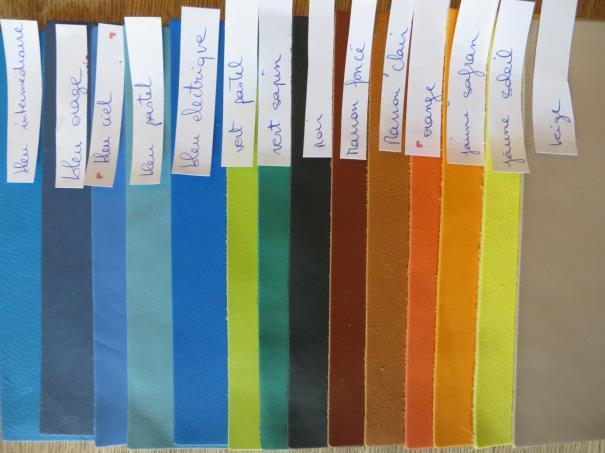 bleu intermédiaire
bleu orage
bleu ciel
bleu pastel
bleu électrique
vert pastel
vert sapin
noir
Marron foncé
Marron clair
orange
jaune safran
jaune soleil
beige